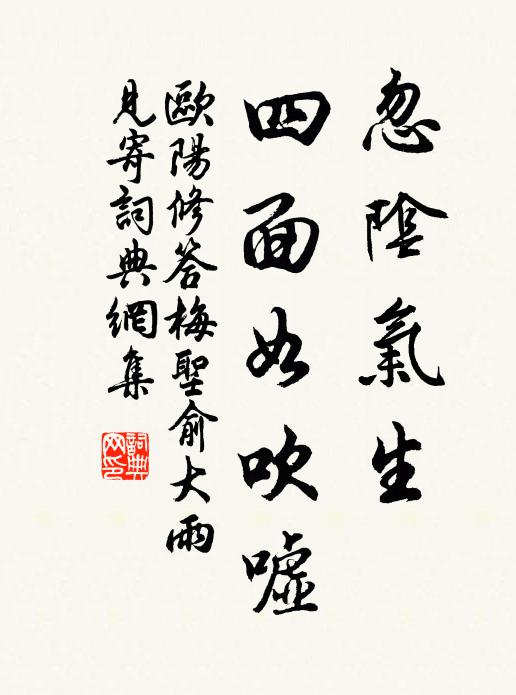 忽陰氣生
四面如吹噓
歐陽修答梅聖俞大雨
見寄詞典網集
詞典网印